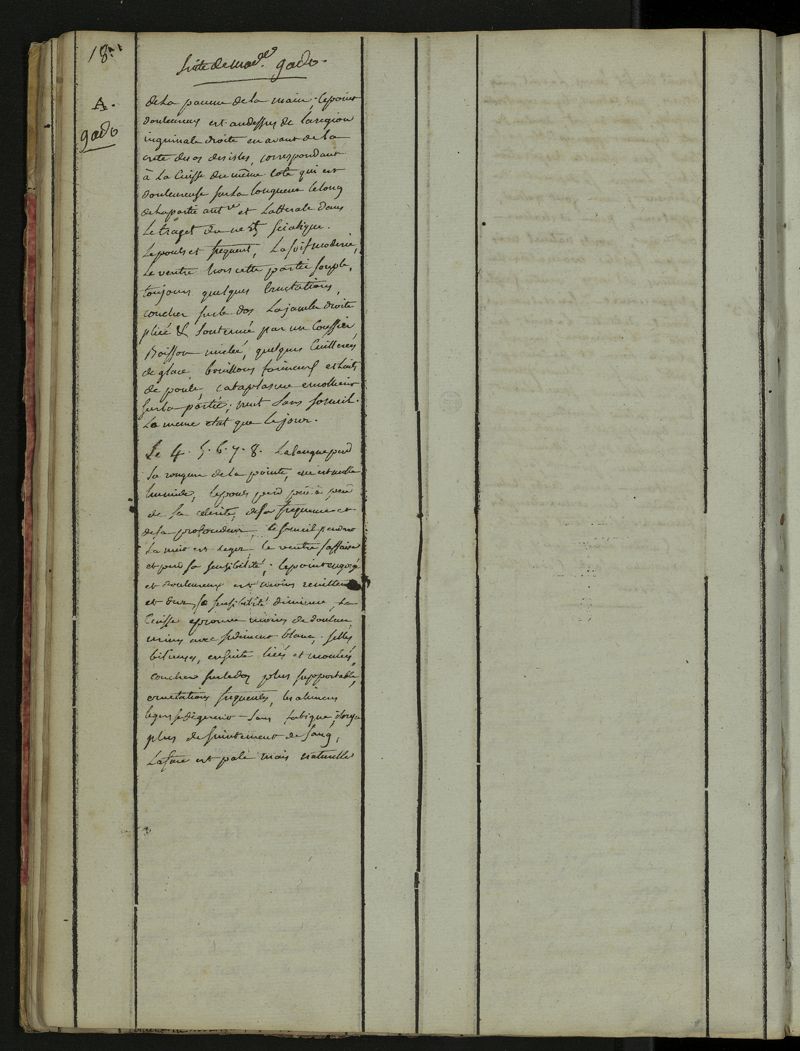 18.
Suite de Made. gado.
A.
gado
de la paume de la main, le point
douloureux est audessus de la region
inguinale droite en avant de la
crete des os des isles, correspondant
à la Cuisse du même coté qui est
douloureuse sur la longueur le long
de la partie antre et latterale dans
le trajet du nerf sciatique.
le pouls est frequent, la soif moderée,
le ventre hors cette partie souple,
toujours quelques Eructations,
coucher sur le dos la jambe droite
pliée & soutenue par un Coussin,
Boisson miellée, quelques Cuillerées
de glace, bouillons farineux et laits
de poule, cataplasme emollient
sur la partie; nuit sans sommeil.
la meme etat que le jour.
Le 4. 5. 6. 7. 8. la langue perd
sa rougeur de la pointe, elle est
humide, le pouls perd peu à peu
de la celerité, de sa frequence et
de sa profondeur, le someil pendant
la nuit est leger, le ventre s'affaisse
et perd sa sensibilité; le point engorgé
et douloureux est moins renittent
et dur sa sensibilité diminue, la
Cuisse eprouve moins de douleur,
urines avec sediment blanc, selles
bilieuses, ensuite liées et moulées,
coucher sur le dos plus supportable,
eructations frequentes, les alimens
legers se digerent sans fatigue,
plus de suintement de sang,
la face est pale mais naturelle